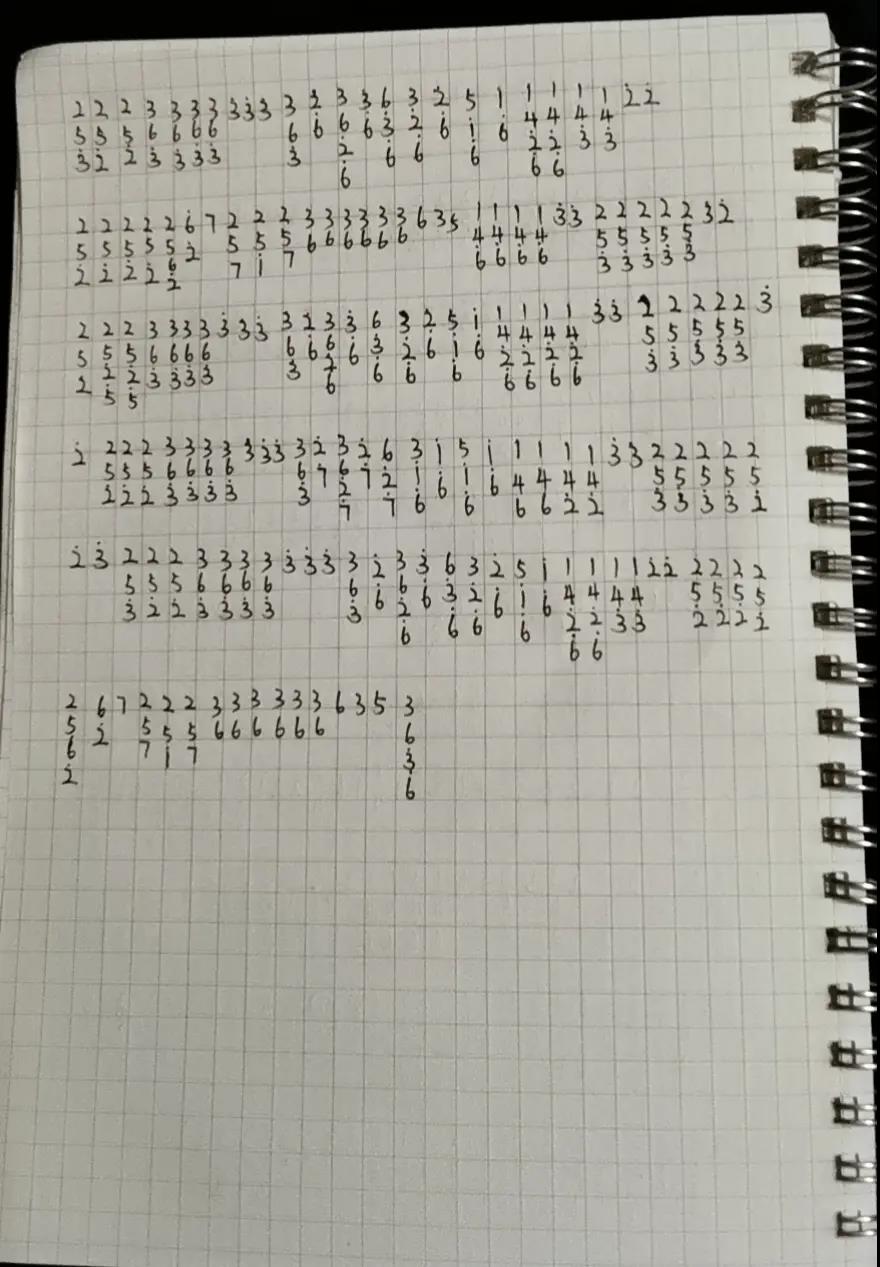 2 2 2 3 3 3 3 3 3̇ 3̇ 3 2̇ 3 3̇ 6 3 2̇ 5 1 1 1 1 1 2̇ 2̇
5 5 5 6 6 6 6 6 6 6 6 3̇ 2̇ 6 1̇ 6 4 4 4 4
3̇ 2̇ 2̇ 3̇ 3̇ 3̇ 3̇ 3̇ 2̇ 6 6 6 2̇ 2̇ 3̇ 3̇
6 6 6
2 2 2 2 2 6 7 2 2 2 3 3 3 3 3 3 6 3 5 1 1 1 1 3̇ 3̇ 2 2 2 2 2 3̇ 2̇
5 5 5 5 5 2̇ 5 5 5 6 6 6 6 6 6 4 4 4 4 5 5 5 5 5
2̇ 2̇ 2̇ 2̇ 6 7 1̇ 7 6 6 6 6 3̇ 3̇ 3̇ 3̇ 3̇
2̇
2 2 2 3 3 3 3 3̇ 3̇ 3̇ 3 2̇ 3 3̇ 6 3 2̇ 5 1̇ 1 1 1 1 3̇ 3̇ 2 2 2 2 2 3̇
5 5 5 6 6 6 6 6 6 6 6 3̇ 2̇ 6 1̇ 6 4 4 4 4 5 5 5 5 5
2 2̇ 2̇ 3̇ 3̇ 3̇ 3̇ 3̇ 2̇ 6 6 6 2̇ 2̇ 2̇ 2̇ 3̇ 3̇ 3̇ 3̇ 3̇
5 5 6 6 6 6 6
2̇ 2 2 2 3 3 3 3 3̇ 3̇ 3̇ 3 2̇ 3 2̇ 6 3 1̇ 5 1̇ 1 1 1 1 3̇ 3̇ 2 2 2 2 2
5 5 5 6 6 6 6 6 7 6 7 2̇ 1̇ 6 1̇ 6 4 4 4 4 5 5 5 5 5
2̇ 2̇ 2̇ 3̇ 3̇ 3̇ 3̇ 3̇ 2̇ 7 6 6 6 6 2̇ 2̇ 3̇ 3̇ 3̇ 3̇ 2̇
7
2̇ 3̇ 2 2 2 3 3 3 3 3̇ 3̇ 3̇ 3 2̇ 3 3̇ 6 3 2̇ 5 1̇ 1 1 1 1 2̇ 2̇ 2 2 2 2
5 5 5 6 6 6 6 6 6 6 6 3̇ 2̇ 6 1̇ 6 4 4 4 4 5 5 5 5
3̇ 2̇ 2̇ 3̇ 3̇ 3̇ 3̇ 3̇ 2̇ 6 6 6 2̇ 2̇ 3̇ 3̇ 2̇ 2̇ 2̇ 2̇
6 6 6
2 6 7 2 2 2 3 3 3 3 3 3 6 3 5 3
5 2̇ 5 5 5 6 6 6 6 6 6 6
6 7 1̇ 7 3̇
2̇ 6